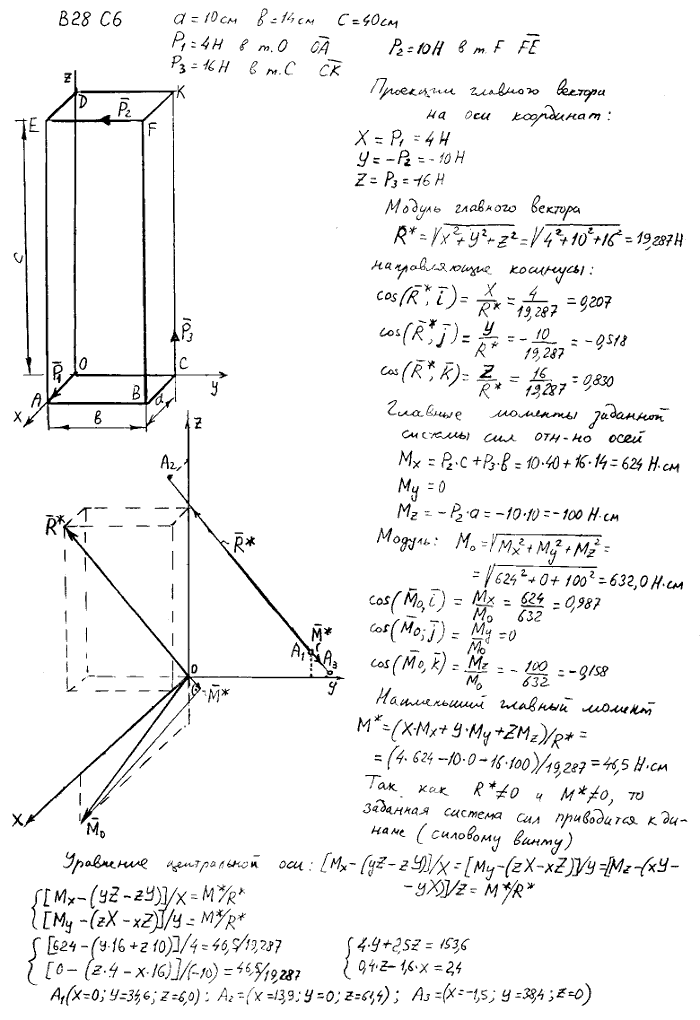 В28 С6 a = 10см в = 14см C = 40см
P₁ = 4Н в т.О ОА P₂ = 10Н в т.F FE
P₃ = 16Н в т.С CK
z
D
K
E
P₂
F
Проекции главного вектора
на оси координат:
X = P₁ = 4Н
Y = -P₂ = -10Н
Z = P₃ = 16Н
Модуль главного вектора
R* = √X²+Y²+Z² = √4²+10²+16² = 19,287Н
направляющие косинусы:
cos(R*, i) = X/R* = 4/19,287 = 0,207
cos(R*, j) = Y/R* = -10/19,287 = -0,518
cos(R*, k) = Z/R* = 16/19,287 = 0,830
C
P₃
P₁
O
C
y
A
B
a
x
в
Главные моменты заданной
системы сил отн-но осей
Mx = P₂·c + P₃·в = 10·40 + 16·14 = 624 Н·см
My = 0
Mz = -P₂·a = -10·10 = -100 Н·см
Модуль: M₀ = √Mx²+My²+Mz² =
= √624²+0+100² = 632,0 Н·см
cos(M₀, i) = Mx/M₀ = 624/632 = 0,987
cos(M₀, j) = My/M₀ = 0
cos(M₀, k) = Mz/M₀ = -100/632 = -0,158
z
A₂
R*
R*
M*
A₁
A₃
O
M*
y
x
M₀
Наименьший главный момент
M* = (X·Mx + Y·My + ZMz)/R* =
= (4·624 - 10·0 - 16·100)/19,287 = 46,5 Н·см
Так как R*≠0 и M*≠0, то
заданная система сил приводится к ди-
наме (силовому винту)
Уравнение центральной оси: [Mx-(yZ-zY)]/X = [My-(zX-xZ)]/Y = [Mz-(xY-
-yX)]/Z = M*/R*
[Mx-(yZ-zY)]/X = M*/R*
[My-(zX-xZ)]/Y = M*/R*
[624-(y·16+z·10)]/4 = 46,5/19,287 4·y+2,5z = 153,6
[0-(z·4-x·16)]/(-10) = 46,5/19,287 0,4·z-1,6·x = 2,4
A₁(x=0; y=34,6; z=6,0); A₂=(x=13,9; y=0; z=61,4); A₃=(x=-1,5; y=38,4; z=0)